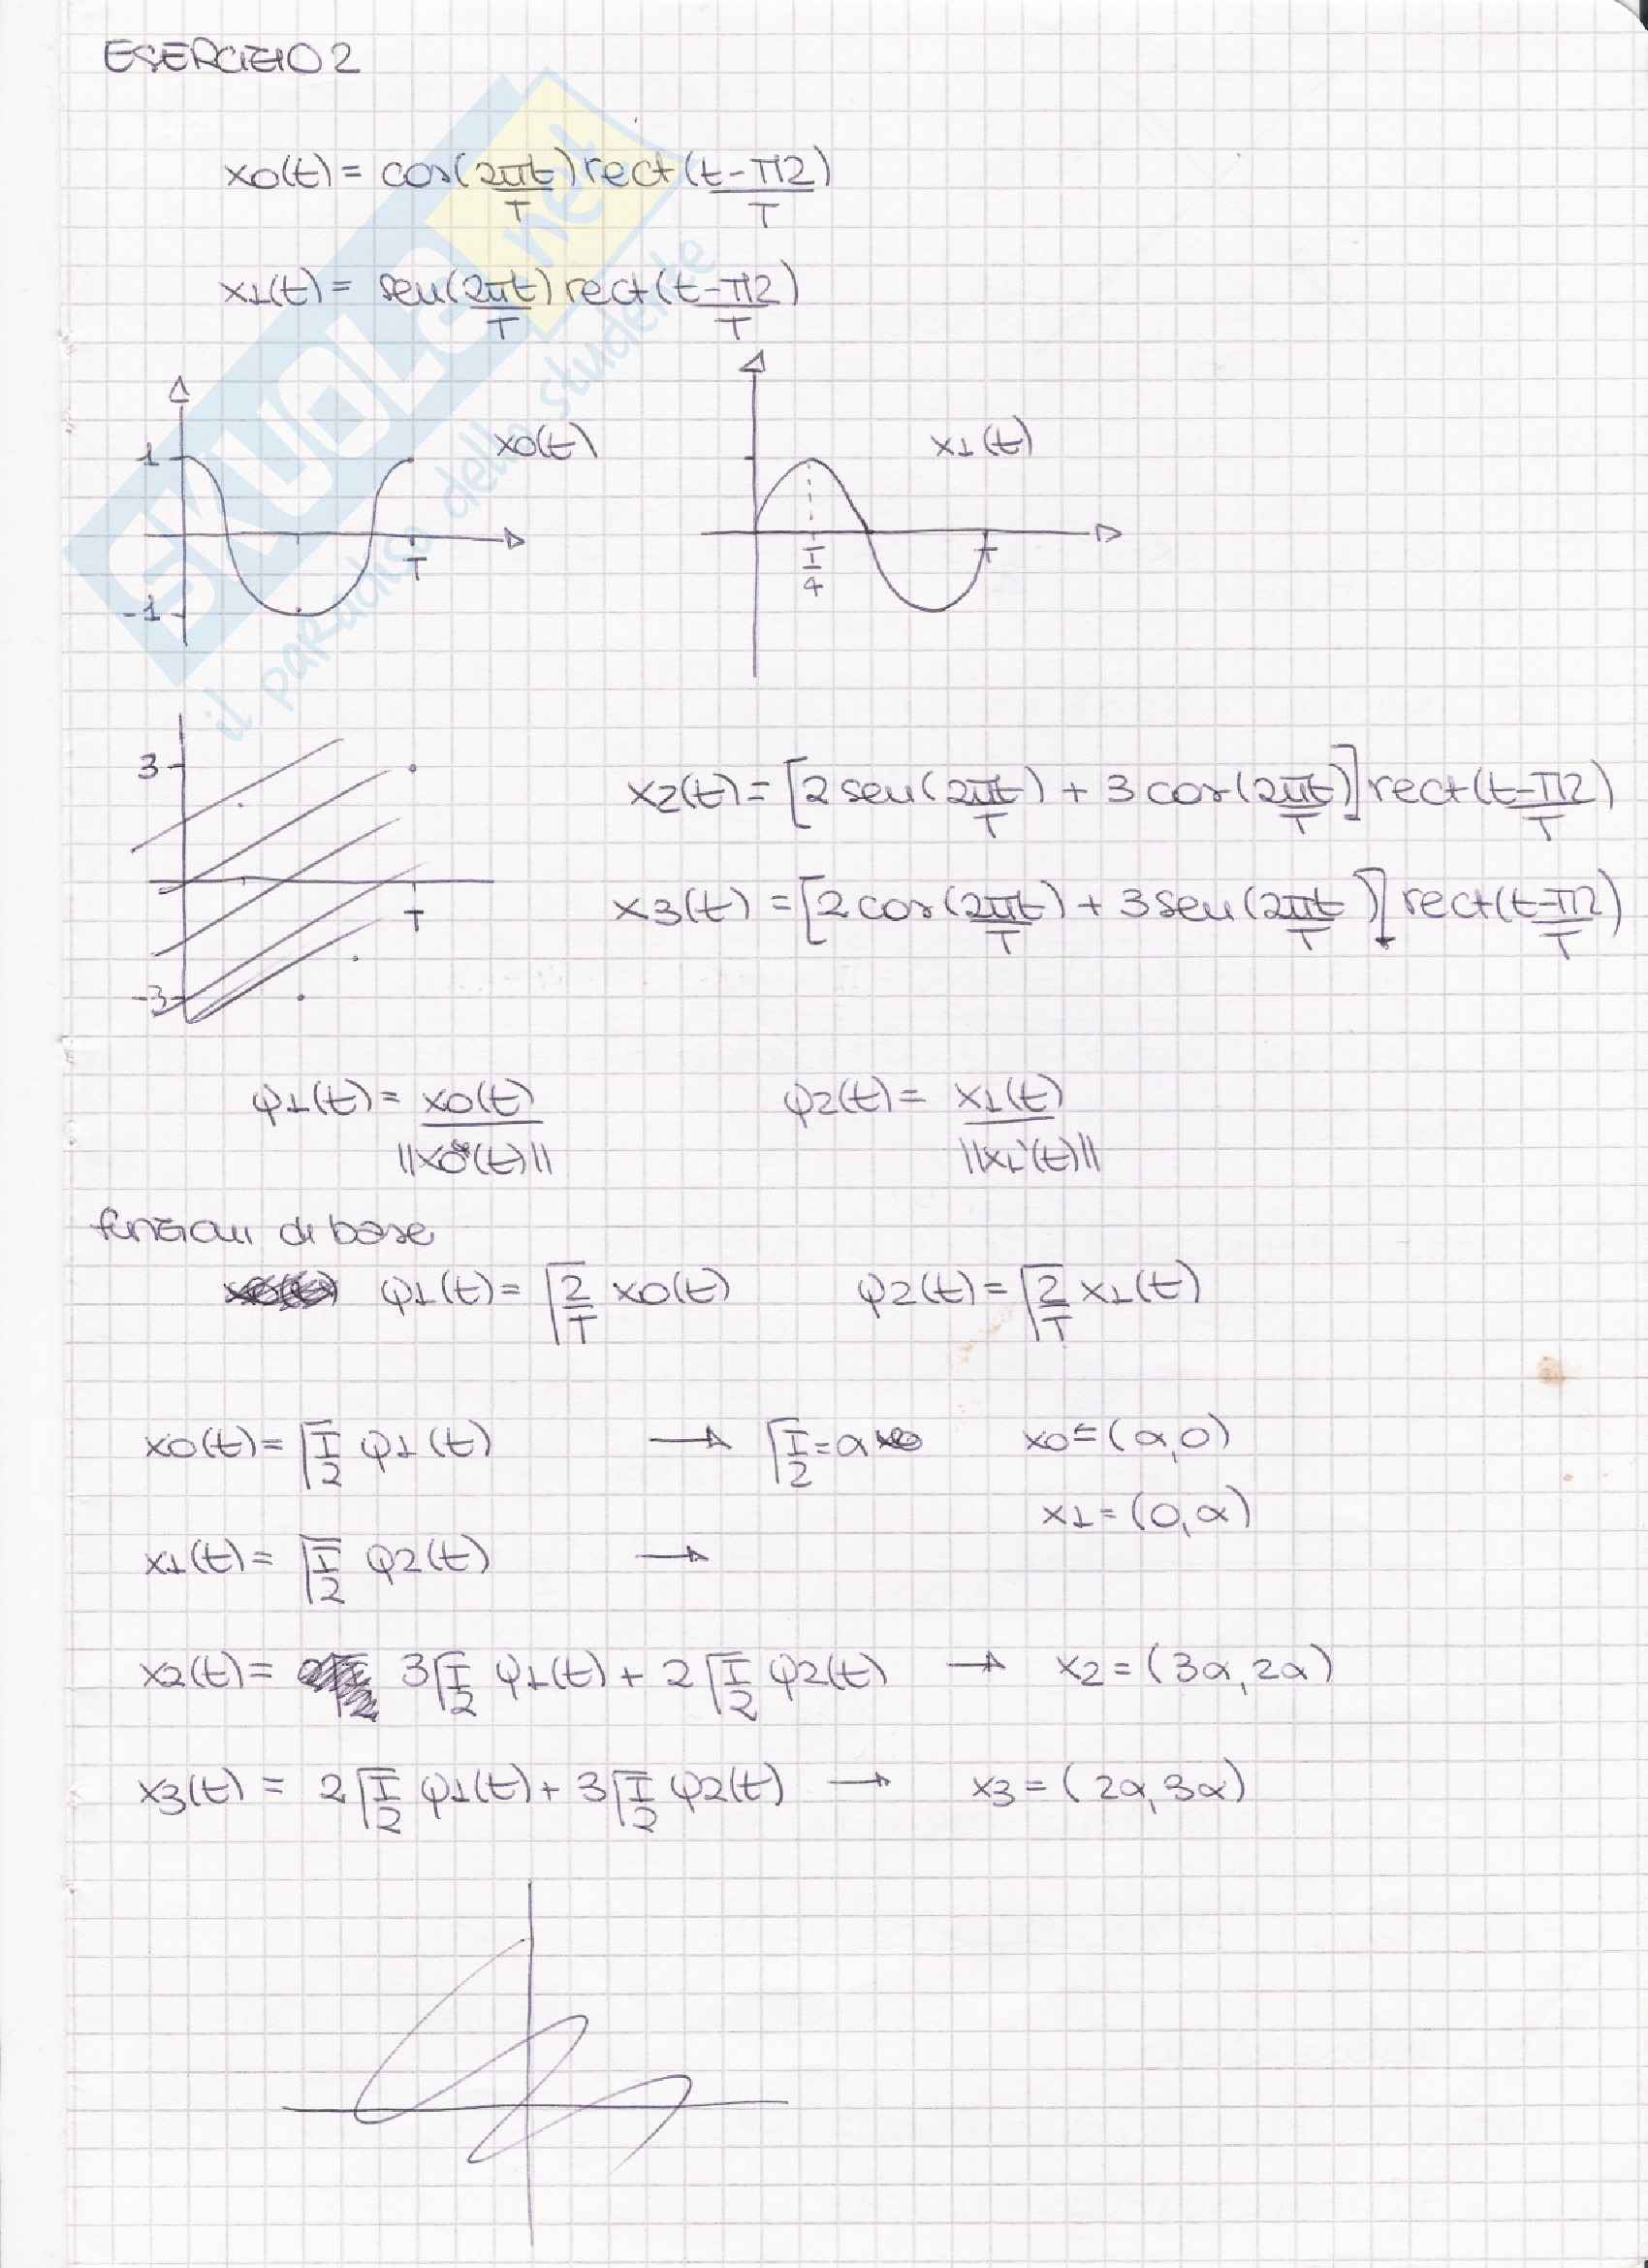 ESERCIZIO 2
x0(t) = cos(2πt/T) rect(t-T/2/T)
x1(t) = sen(2πt/T) rect(t-T/2/T)
1
x0(t)
T
-1
x1(t)
T/4
T
3
T
-3
x2(t) = [2 sen(2πt/T) + 3 cos(2πt/T)] rect(t-T/2/T)
x3(t) = [2 cos(2πt/T) + 3 sen(2πt/T)] rect(t-T/2/T)
φ1(t) = x0(t)/||x0(t)|| φ2(t) = x1(t)/||x1(t)||
funzioni di base
φ1(t) = √2/T x0(t) φ2(t) = √2/T x1(t)
x0(t) = √T/2 φ1(t) → √T/2 = α x0 = (α,0)
x1 = (0,α)
x1(t) = √T/2 φ2(t) →
x2(t) = 3√T/2 φ1(t) + 2√T/2 φ2(t) → x2 = (3α, 2α)
x3(t) = 2√T/2 φ1(t) + 3√T/2 φ2(t) → x3 = (2α, 3α)
SKUOLA.net
il paradiso dello studente